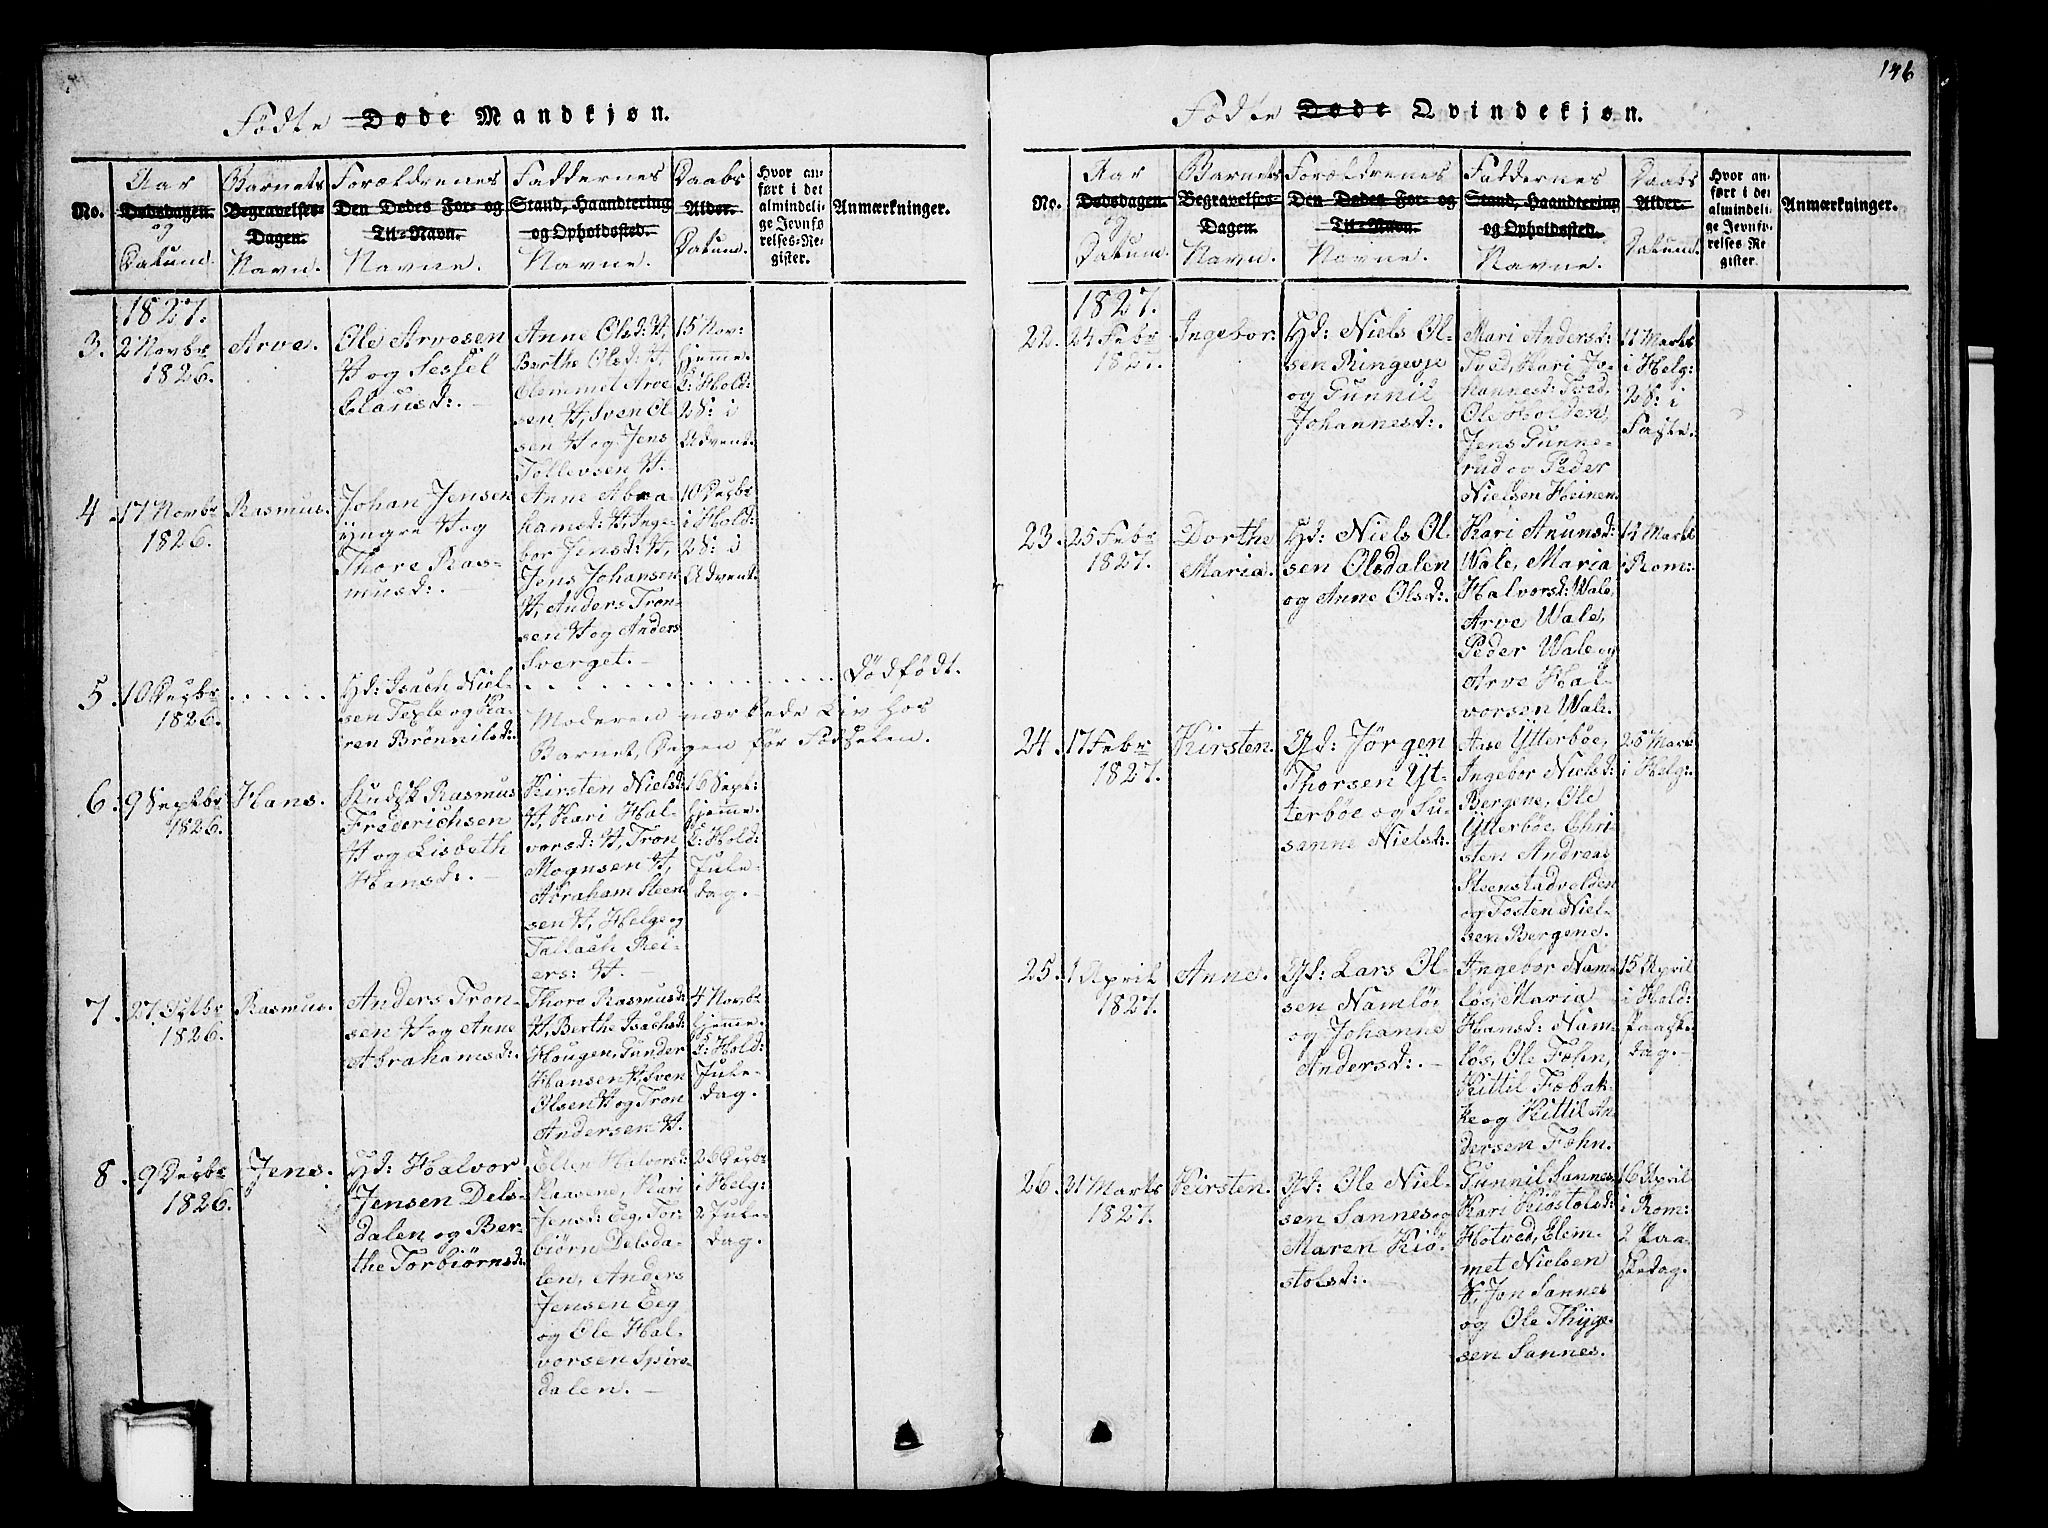 146
Fødte Døde Mandkjøn.
No.
Aar
Dødsdagen.
og
Datum.
Barnets
Begravelses-
Dagen.
Navn.
Forældrenes
Den Dødes For- og
Til-Navn.
Navne.
Faddernes
Stand, Haandtering
og Opholdssted.
Navne.
Daabs
Alder.
Datum.
Hvor an-
ført i det
almindeli-
ge Jevnfø-
relses-Re-
gister.
Anmærkninger.
1827.
3.
2 Novbr
1826.
Arve.
Ole Arvesen
H og Sessel
Clausd:.
Anne Olsd: H,
Berthe Olsd: H,
Clemmet Arve
sen H, Sven Ol
sen H og Jens
Tollevsen H.
15 Nov:
hjemme.
C: Hold:
2 S: i
Advent.
4.
17 Novbr
1826.
Rasmus.
Johan Jensen
yngre H og
Thore Ras-
musd:.
Anne Abra
hamsd: H, Inge-
bor Jensd: H,
Jens Johansen
H, Anders Tron-
sen H og Anders
Sverget.
10 Decbr
i Hold:
2 S: i
Advent.
5.
10 Decbr
1826.
Hd: Isach Niel-
sen Texle og Ka-
ren Brønnilsd:.
Moderen mærkede Liv hos
Barnet, Dagen før Fødselen.
Dødfødt.
6.
9 Septbr
1826.
Hans.
Rasmus
Frederichsen
H og Lisbeth
Hansd:.
Kirsten Nielsd:
H, Kari Hal-
vorsd: H, Tron
Mognsen H,
Abraham Steen
sen H, Helge og
Tallach Rei-
ers: H.
16 Sept:
hjemme.
C: Hold:
Jule-
dag.
7.
27 Octbr
1826.
Rasmus.
Anders Tron-
sen H og Anne
Abrahamsd:.
Thore Rasmusd:
H, Berthe Isachsd:
Hougen, Gunder
Hansen H, Sven
Olsen H og Tron
Andersen H.
4 Novbr
hjemme.
C: Hold:
Jule-
dag.
8.
9 Decbr
1826.
Jens.
Hd: Halvor
Jensen Dels-
dalen og Ber-
the Torbiørnsd:
Ellen Halvorsd:
Raasene, Kari
Jensd: Eeg, Tor-
biørn Delsda-
len, Anders
Jensen Eeg
og Ole Hal-
vorsen Spire-
dalen.
26 Decbr
i Helg:
2 Jule-
dag.
Fødte Døde Qvindekjøn.
No.
Aar
Dødsdagen.
og
Datum.
Barnets
Begravelses-
Dagen.
Navn.
Forældrenes
Den Dødes For- og
Til-Navn.
Navne.
Faddernes
Stand, Haandtering
og Opholdssted.
Navne.
Daabs
Alder.
Datum.
Hvor an-
ført i de
almindeli-
ge Jevnfø-
relses Re
gister.
Anmærkninger.
1827.
22.
24 Febr
1827.
Ingebor.
Hd: Niels Ol-
sen Ringesje
og Gunnil
Johannesd:.
Mari Andersd:
Tved, Kari Jo-
hannesd: Tved,
Ole Holden,
Jens Gunne-
rud og Peder
Nielsen Heinen.
11 Marts
i Helg:
2 S: i
Faste.
23.
25 Febr
1827.
Dorthe
Maria.
Hd: Niels Ol-
sen Olsdalen
og Anne Olsd:.
Kari Anunsd:
Wale, Maria
Halvorsd: Wale,
Arve Wale,
Peder Wale og
Arve Hal-
vorsen Wale.
14 Marts
i Rom:
24.
17 Febr
1827.
Kirsten.
Gd: Jørgen
Thorsen Yt-
terbøe og Su-
sanne Nielsd:
Ytterbøe,
Ingebor Nielsd:
Bergene, Ole
Ytterbøe, Chri-
sten Andreas
Steenstadvolden
og Tosten Niel-
sen Bergene.
25 Marts
i Helg:
25.
1 April
1827.
Anne.
Gd: Lars Ol-
sen Namløs
og Johanne
Andersd:.
Ingebor Nam-
løs, Maria
Hansd: Nam-
løs, Ole Føhn,
Kittil Fobak-
ke og Kittil An
dersen Føhn.
15 April
i Hold:
Paaske
dag.
26.
31 Marts
1827.
Kirsten.
Gd: Ole Niel-
sen Sannes og
Maren Kiø-
stolsd:.
Gunnil Sannes,
Kari Kiøstolsd:
Hotved, Clem-
met Nielsen
H, Jon Sannes
og Ole Thyge-
sen Sannes.
16 April
i Rom:
2 Paa-
skedag.